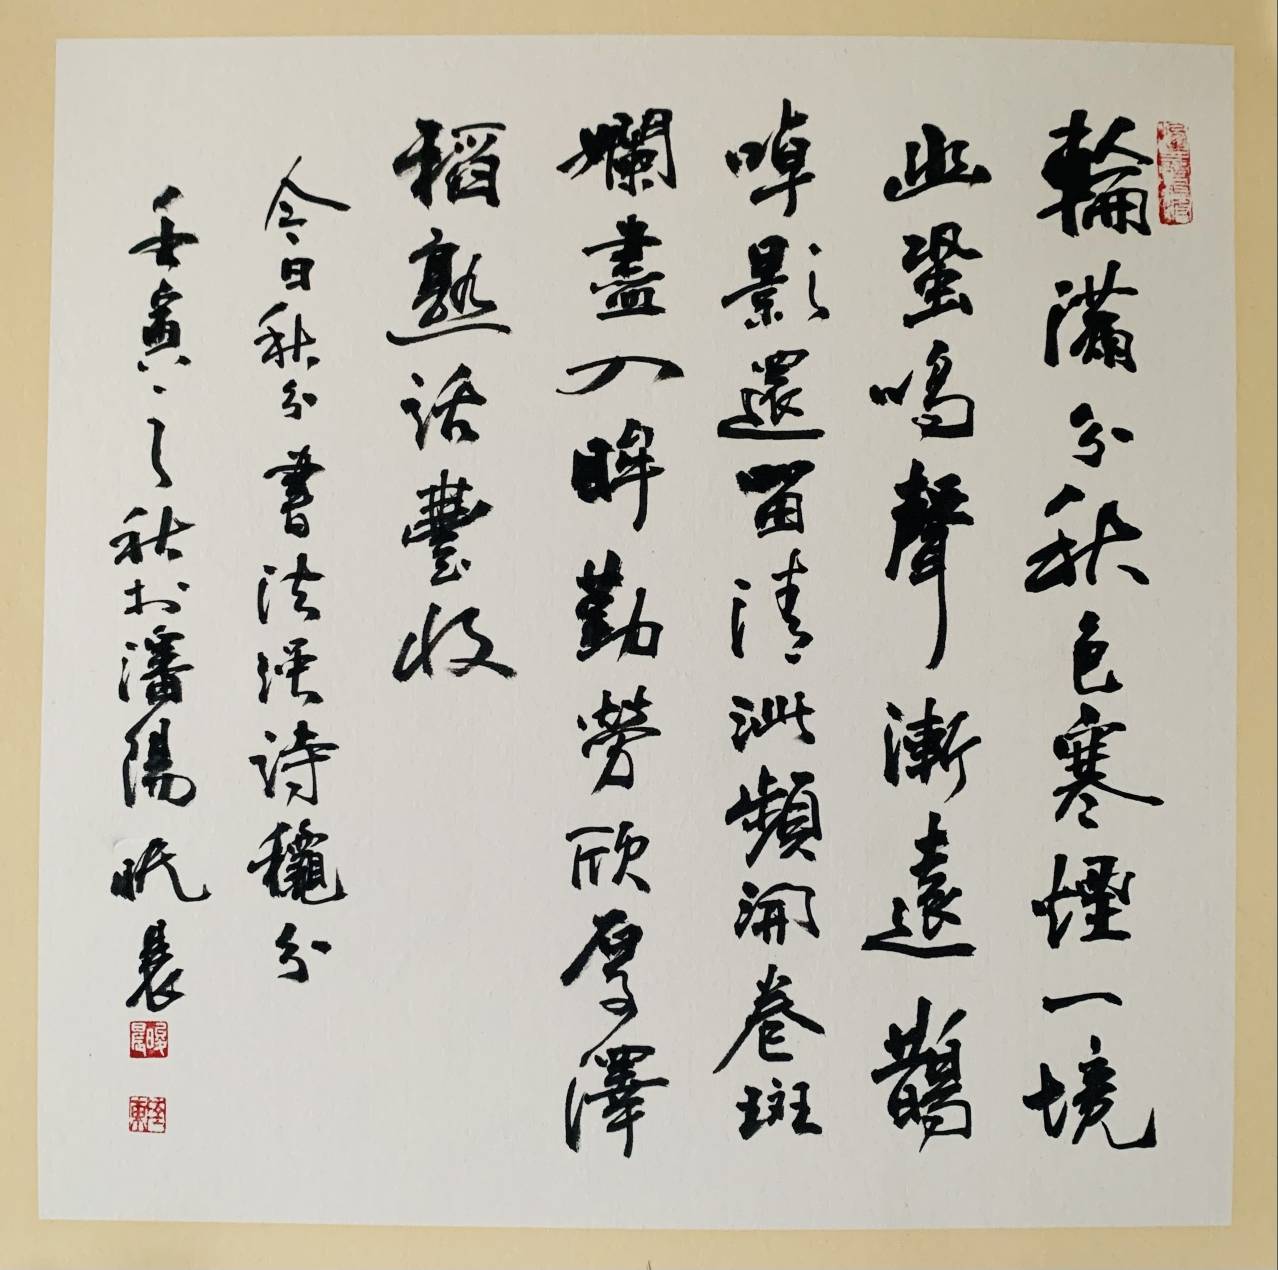 輪滿分秋色寒煙一境
幽蛩鳴聲漸遠鵲
啅影還留清沚頻開卷斑
斕盡入眸勤勞欣厚澤
稻熟話豐收
今日秋分書法漢詩龝分
壬寅之秋於瀋陽晨